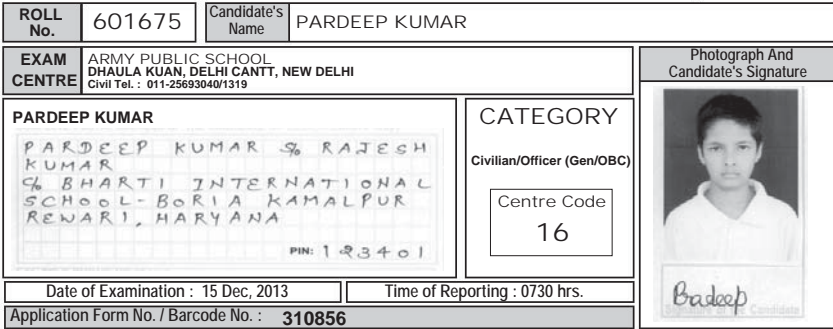 ROLL No. 601675 Candidate's Name PARDEEP KUMAR
EXAM CENTRE
ARMY PUBLIC SCHOOL
DHAULA KUAN, DELHI CANTT, NEW DELHI
Civil Tel. : 011-25693040/1319
Photograph And
Candidate's Signature
PARDEEP KUMAR
PARDEEP KUMAR S/o RAJESH
KUMAR
C/o BHARTI INTERNATIONAL
SCHOOL-BORIA KAMALPUR
REWARI, HARYANA
PIN: 123401
CATEGORY
Civilian/Officer (Gen/OBC)
Centre Code
16
Pradeep
Signature of the Candidate
Date of Examination : 15 Dec, 2013
Time of Reporting : 0730 hrs.
Application Form No. / Barcode No. : 310856